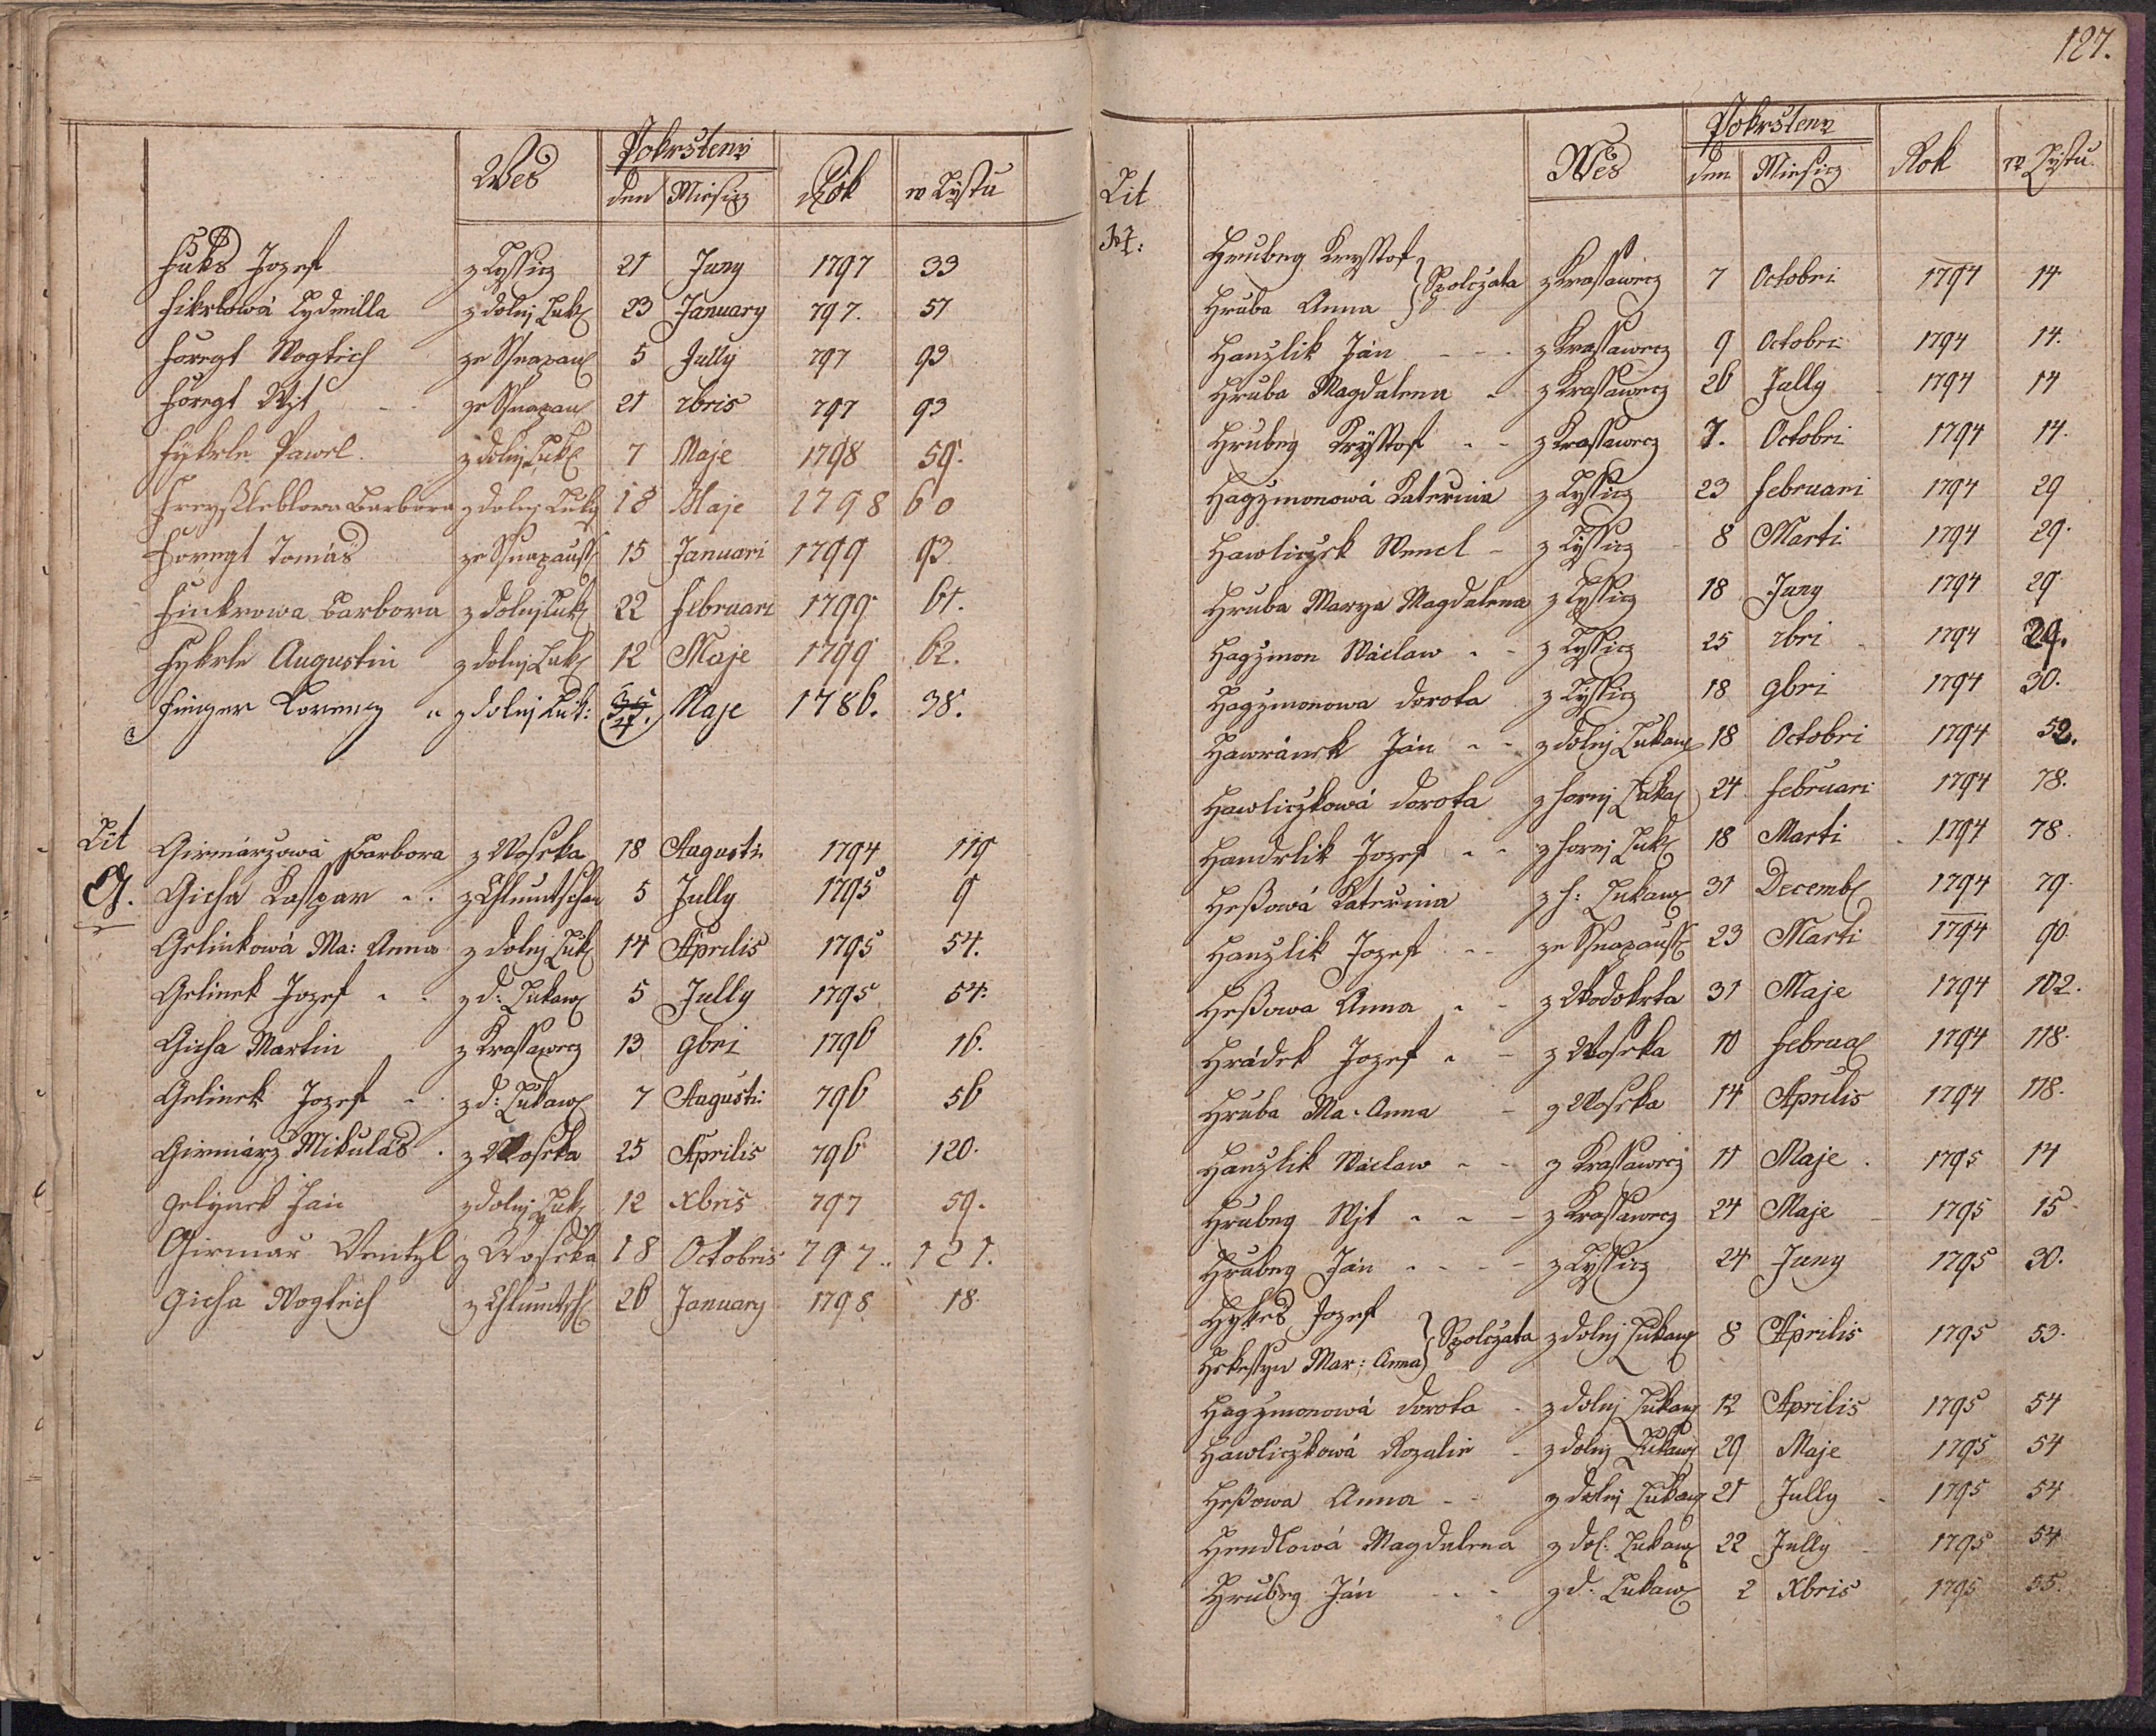 Wes Pokrsteny Rok w Lystu
den Miesicz
Fuks Jozef z Lyssicz 21 Juny 1797 33
Fikrlowá Lydmilla z dolej Luk 23 January 797. 57
Foregt Wogtich ze Snopaus 5 Jully 797 93
Foregt Wjt ze Snopaus 21 7bris 797 93
Fykrle Pawel. z dolej Luk 7 Maje 1798 59.
Freyßleblowa Barbora z dolej Luk 18 Maje 1798 60
Foregt Tomás ze Snopauss 15 Januari 1799 93
Finkrowa Barbora z dolej Luk 22 Februari 1799 61.
Fykrle Augustin z dolej Luk 12 Maje 1799 62.
Finger Lorencz z dolej Luk: Maje 1786. 38.
Lit G.
Girmárzowá Barbora z Woseka 18 Augusti 1794 119
Gicha Kasspar z Chlumtschan 5 Jully 1795 9
Gelinkowá Ma: Anna z dolej Luk 14 Aprilis 1795 54.
Gelinek Jozef z d: Lukaw 5 Jully 1795 54.
Gicha Martin z Krassawecz 13 9bri 1796 16.
Gelinek Jozef z d: Lukaw 7 Augusti 796 56
Girmárz Mikulás z Woseka 25 Aprilis 796 120.
Gelynek Jan z dolej Luk 12 Xbris 797 59.
Girmar Wentzl z Woseka 18 Octobris 797. 121.
Gicha Wogtich z Chlumtsch 26 January 1798 18
127.
Wes Pokrsteny Rok w Lystu
den Miesicz
Lit H:
Hrubeg Krysstof
Hruba Anna } Spolczata z Krassawecz 7 Octobri 1794 14
Hanzlik Ján z Krassawecz 9 Octobri 1794 14.
Hruba Magdalena z Krassawecz 26 Jully 1794 14
Hrubeg Krysstof z Krassawecz 7. Octobri 1794 14.
Hagzmonowá Katerina z Lyssicz 23 Februari 1794 29
Hawliczek Wencl z Lyssicz 8 Marti 1794 29.
Hruba Marya Magdalena z Lyssicz 18 Juny 1794 29
Hagzmon Wáclaw z Lyssicz 25 7bri 1794 29.
Hagzmonowa Dorota z Lyssicz 18 9bri 1794 30.
Hawránek Ján z dolej Lukaw 18 Octobri 1794 52.
Hawliczkowá Dorota z hornj Lukaw 24 Februari 1794 78.
Handrlik Jozef z hornj Luk 18 Marti 1794 78.
Heßowá Katerina z h: Lukaw 31 Decemb 1794 79.
Hanzlik Jozef ze Snopauss 23 Marti 1794 90.
Heßowa Anna z Wodokrta 31 Maje 1794 102.
Hrádek Jozef z Woseka 10 Februa 1794 118.
Hruba Ma: Anna z Woseka 14 Aprilis 1794 118.
Hanzlik Wáclaw z Krassawecz 11 Maje 1795 14
Hrubeg Wjt z Krassawecz 24 Maje 1795 15
Hrubeg Ján z Lyssicz 24 Juny 1795 30.
Hykes Jozef
Hekessyn Mar: Anna } Spolczata z dolej Lukaw 8 Aprilis 1795 53.
Hagzmonowá Dorota z dolej Lukaw 12 Aprilis 1795 54
Hawliczkowá Rozalie z dolej Lukaw 29 Maje 1795 54
Heßowa Anna z dolej Lukaw 21 Jully 1795 54
Hendlowá Magdalena z dol: Lukaw 22 Jully 1795 54
Hrubeg Ján z d. Lukaw 2 Xbris 1795 55.